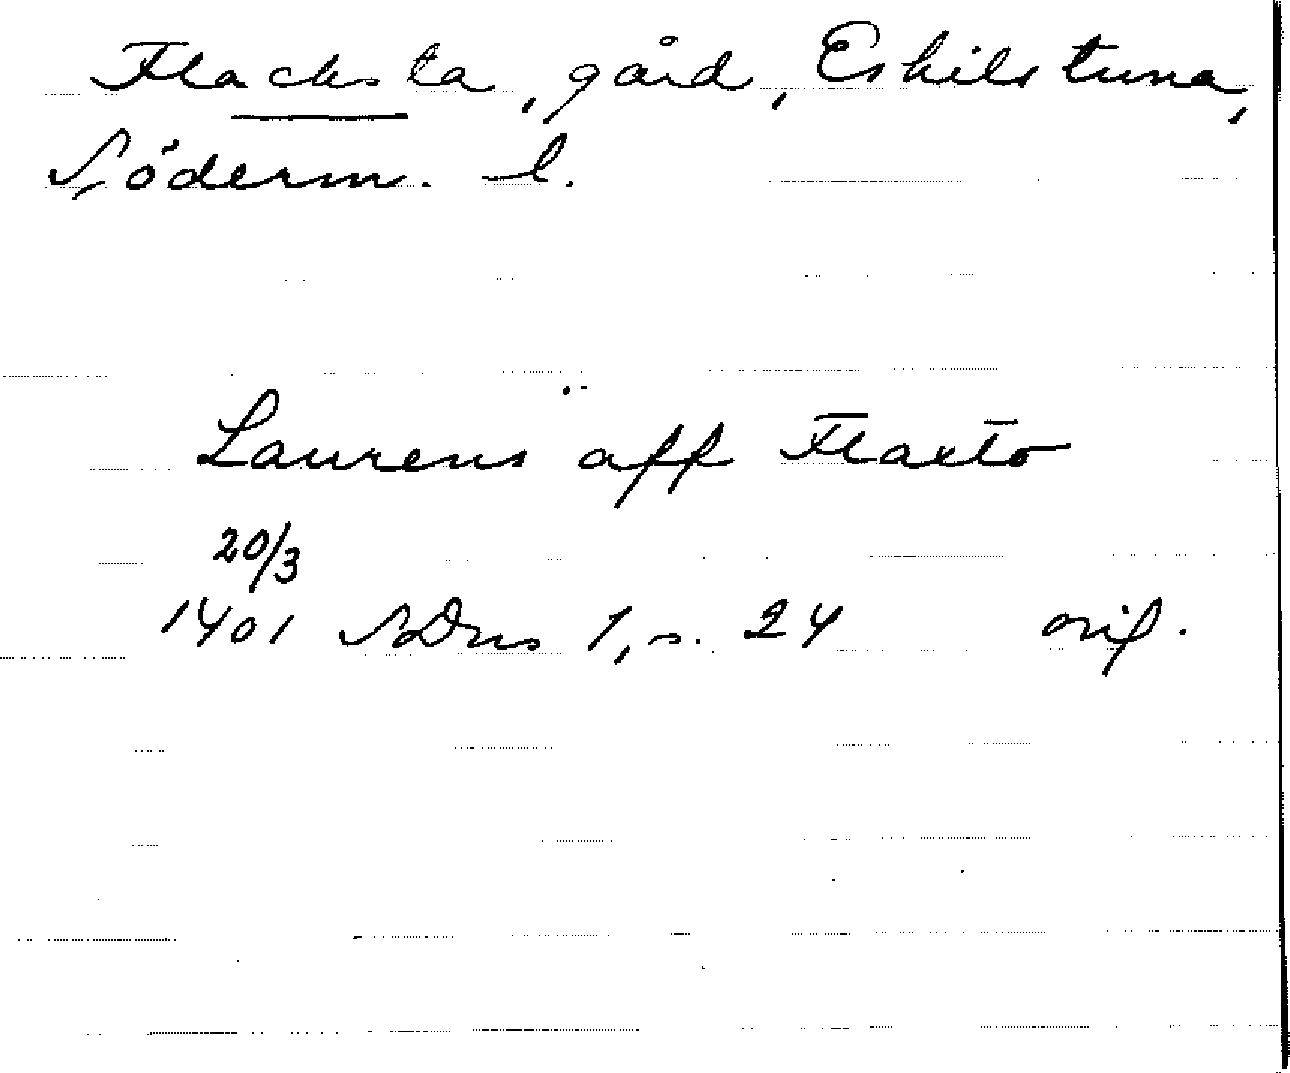 Flacksta, gård, Eskilstuna,
Söderm. l.
Laurens aff Flaxto
20/3
1401 SDns 1, s. 24 orig.